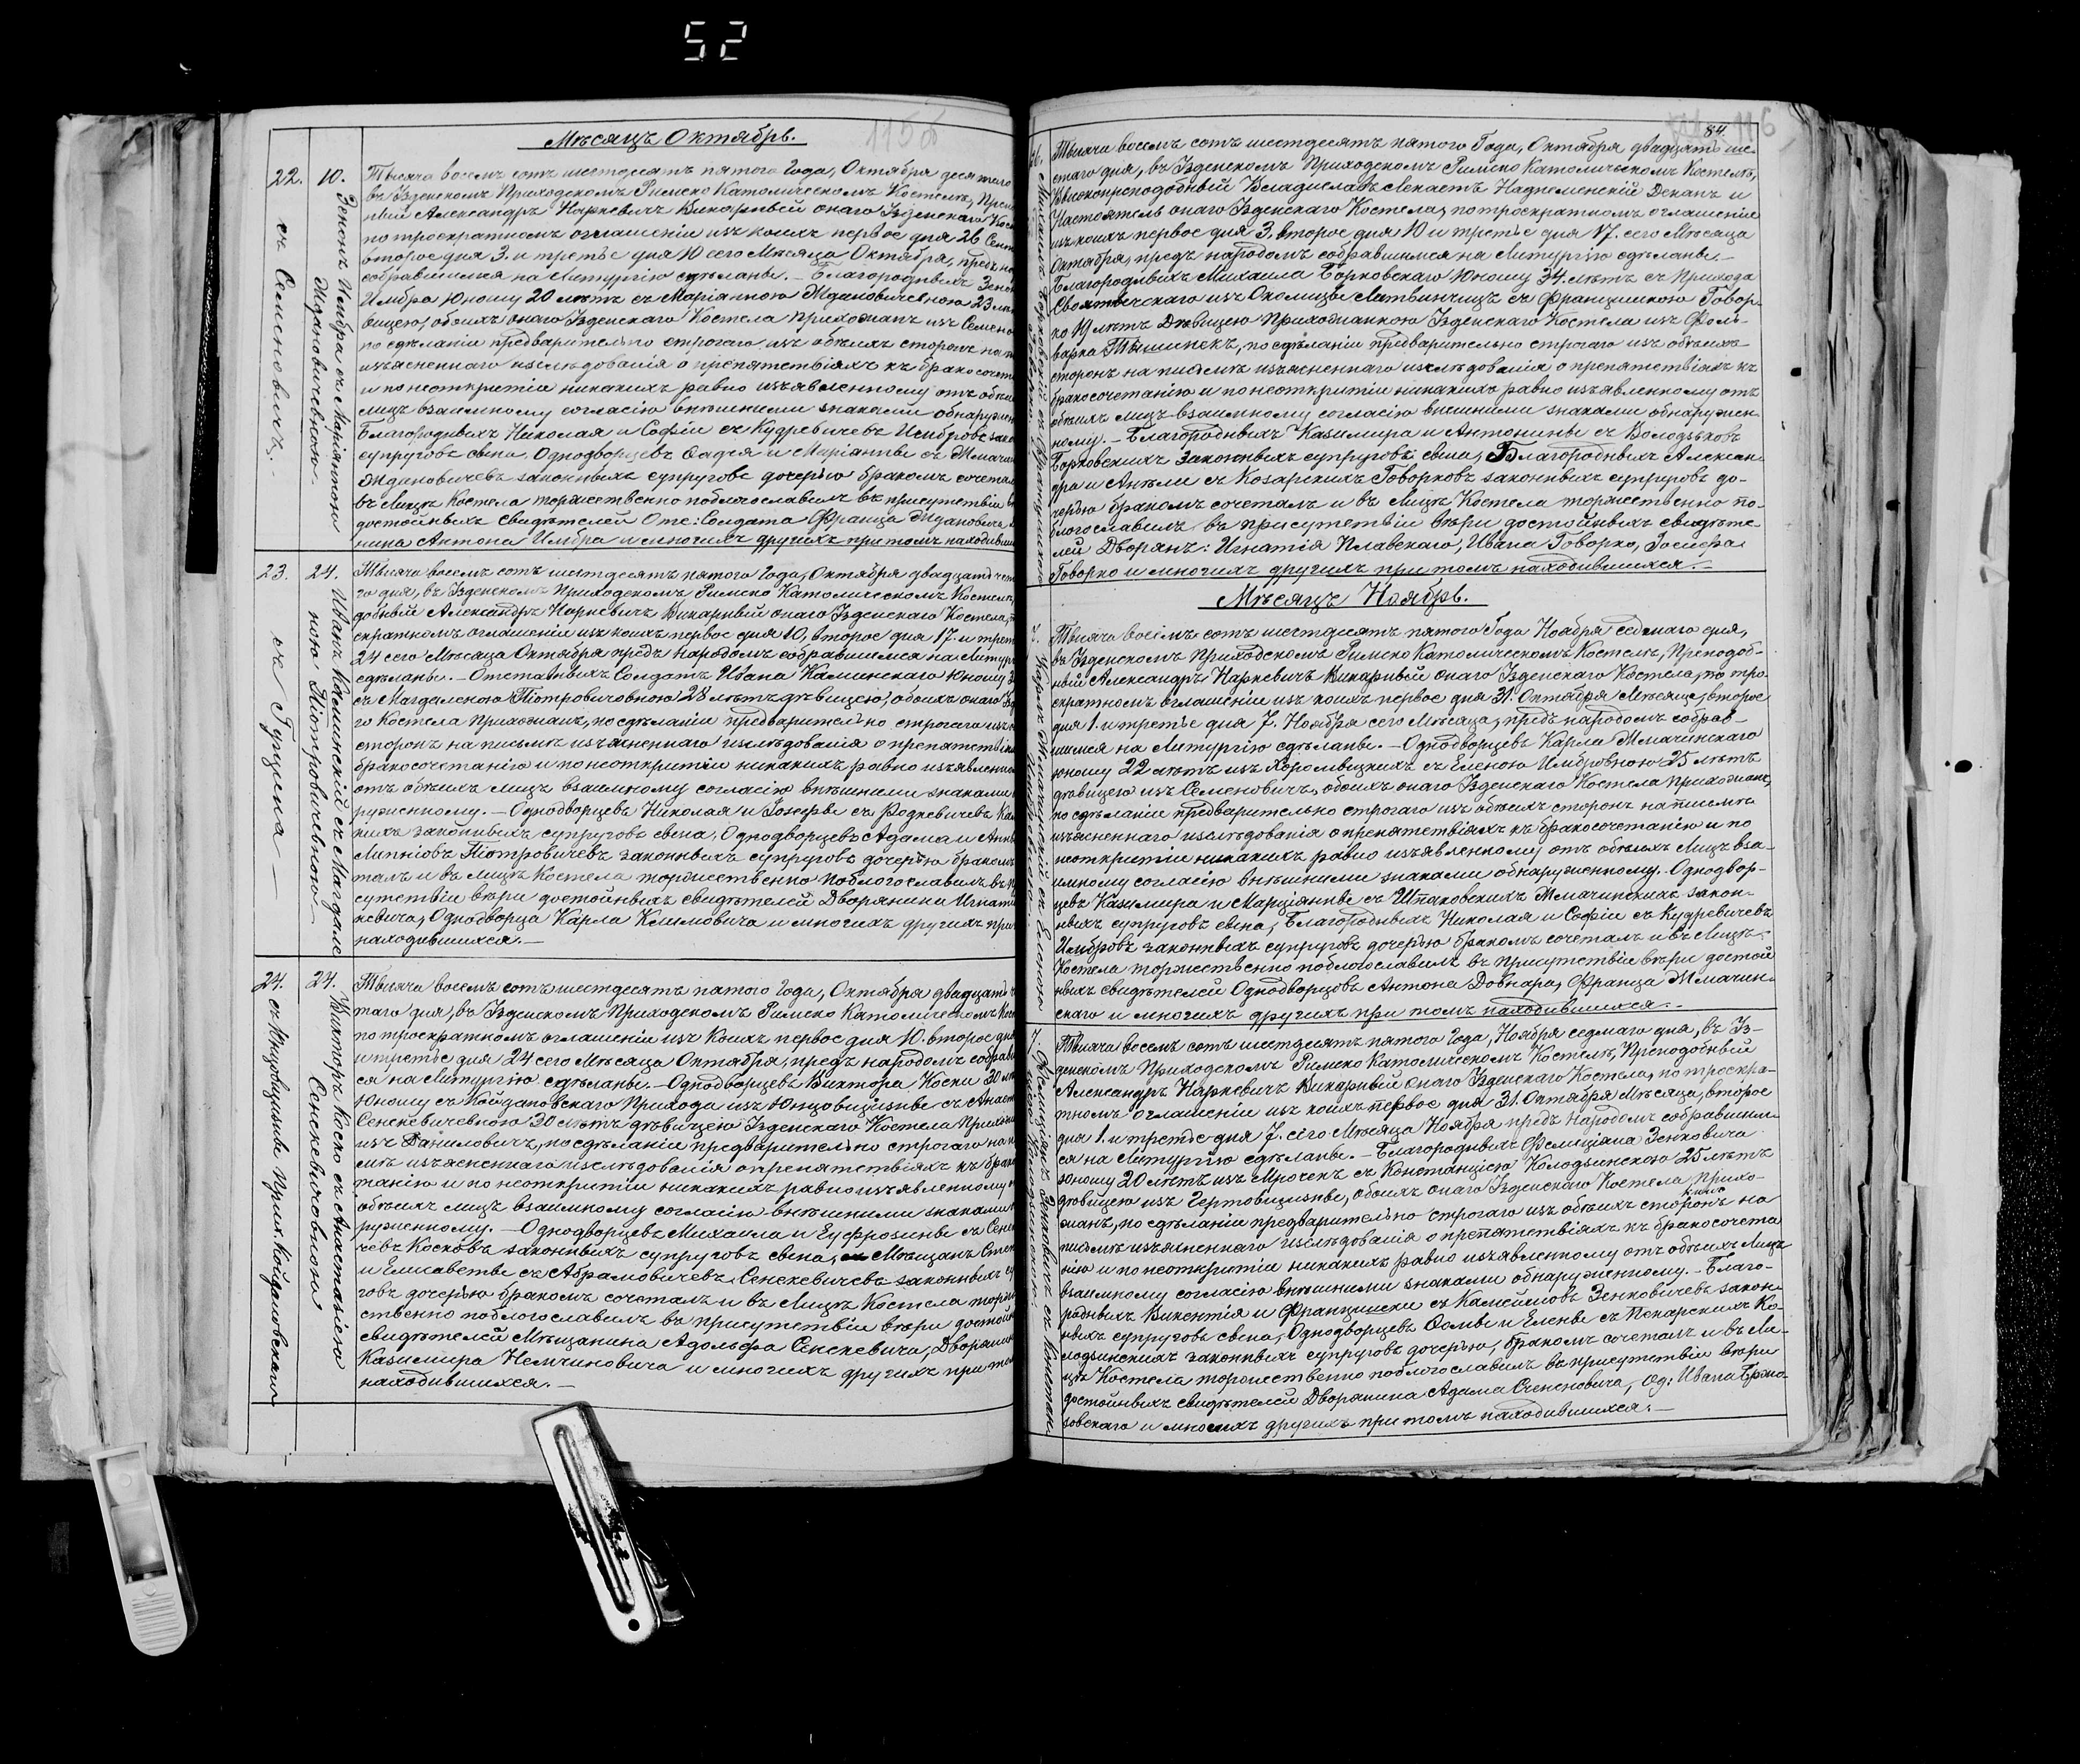 52
Мѣсяцъ Октябрь.
115 б
22.
10.
съ Семеновичъ.
Зенонъ Цымбра съ Маріянною
Ждановичевною.
Тысяча восемъ сотъ шестдесятъ пятого Года, Октября десятого
въ Узденскомъ Приходскомъ Римско Католическомъ Костелѣ,
ный Александръ Наркевичъ Викарный онаго Узденскаго
по троекратномъ оглашеніи изъ коихъ первое дня 26
второе дня 3. и третье дня 10 сего Мѣсяца Октября, предъ
собравшимся на Литургію сдѣланы. – Благородныхъ
юношу 20 лѣтъ съ Маріянною Ждановичевною 23
вицею, обоихъ онаго Узденскаго Костела прихожанъ изъ
по сдѣланіи предварительно строгаго изъ обѣихъ сторонъ
изъясненнаго изслѣдованія о препятствіяхъ къ
и по неоткрытіи никакихъ равно изъявленному отъ
лицъ взаимному согласію внѣшними знаками
Благородныхъ Николая и Софіи съ Кудревичевъ
супруговъ сына, Однодворцевъ и Маріянны съ
Ждановичевъ законныхъ супруговъ дочерью бракомъ
въ Лицѣ Костела торжественно поблогославилъ въ присутствіи
достойныхъ свидѣтелей Отс: Солдата Франца Ждановича
Антона и многихъ другихъ при томъ
23.
24.
съ Гущена –
Иванъ Каминскій съ Магдале
ною Піотровичевною
Тысяча восемъ сотъ шестдесятъ пятого Года, Октября двадцать
го дня, въ Узденскомъ Приходскомъ Римско Католическомъ
добный Александръ Наркевичъ Викарный онаго Узденскаго Костела,
скратномъ оглашеніи изъ коихъ первое дня 10, второе дня 17. и
24 сего Мѣсяца Октября предъ народомъ собравшимся на
сдѣланы. – Отставныхъ Солдатъ Ивана Каминскаго юношу
съ Магдаленою Піотровичовною 28 лѣтъ дѣвицею, обоихъ онаго
го Костела Прихожанъ, по сдѣланіи предварительно строгаго
сторонъ на письмѣ изъясненнаго изслѣдованія о
бракосочетанію и по неоткрытіи никакихъ равно
отъ обѣихъ лицъ взаимному согласію внѣшними знаками
руженному. – Однодворцевъ Николая и Іозефы съ Родкевичевъ
кихъ законныхъ супруговъ сына, Однодворцевъ Адама и
Піотровичевъ законныхъ супруговъ дочерью бракомъ
талъ и въ лицѣ Костела торжественно поблогославилъ
сутствіи вѣры достойныхъ свидѣтелей Дворянина
кевича, Однодворца Карла Климовича и многихъ другихъ
находившихся. –
24.
24.
съ Юцовщизны Прих. Койдановскаго
Викторъ Коско съ Анастасіею
Сенкевичовною
Тысяча восемъ сотъ шестдесятъ пятого Года, Октября
таго дня, въ Узденскомъ Приходскомъ Римско Католическомъ
по троекратномъ оглашеніи изъ коихъ первое дня 10. второе
и третье дня 24 сего Мѣсяца Октября, предъ народомъ
ся на Литургію сдѣланы. – Однодворцевъ Виктора Коски 30
юношу съ Койдановскаго Прихода изъ съ
Сенкевичевною 30 лѣтъ дѣвицею Узденскаго Костела
изъ Даниловичъ, по сдѣланіи предварительно строгаго
мѣ изъясненнаго изслѣдованія о препятствіяхъ къ
танію и по неоткрытіи никакихъ равно изъявленному
обѣихъ лицъ взаимному согласію внѣшними знаками
руженному. – Однодворцевъ Михаила и Еуфрозины съ
чевъ Косковъ законныхъ супруговъ сына, Мѣщанъ
и Елисаветы съ Абрамовичевъ Сенкевичевъ законныхъ
говъ дочерью бракомъ сочеталъ и въ Лицѣ Костела
ственно поблогославилъ въ присутствіи вѣры
свидѣтелей Мѣщанина Адольфа Сенкевича,
Казимира Немчиновича и многихъ другихъ
находившихся. –
84.
116
Михаилъ Борковскій съ Францишкою
Тысяча восемъ сотъ шестдесятъ пятого Года, Октября двадцать ше-
стаго дня, въ Узденскомъ Приходскомъ Римско Католическомъ Костелѣ,
Высокопреподобный Владиславъ Надненеменскій Деканъ и
Настоятель онаго Узденскаго Костела, по троекратномъ оглашеніи
изъ коихъ первое дня 3. второе дня 10 и третье дня 17. сего Мѣсяца
Октября, предъ народомъ собравшимся на Литургію сдѣланы. –
Благородныхъ Михаила Борковскаго юношу 34. лѣтъ съ Прихода
изъ Околицы съ Францишкою Говор-
ко 19 лѣтъ Дѣвицею Прихожанкою Узденскаго Костела изъ Фоль-
варка по сдѣланіи предварительно строгаго изъ обѣихъ
сторонъ на письмѣ изъясненнаго изслѣдованія о препятствіяхъ къ
бракосочетанію и по неоткрытіи никакихъ равно изъявленному отъ
обѣихъ лицъ взаимному согласію внѣшними знаками обнаружен-
ному. – Благородныхъ Казимира и Антонины съ Володзьковъ
Борковскихъ законныхъ супруговъ сына, Благородныхъ Алексан-
дра и Анѣли съ Козарскихъ Говорковъ законныхъ супруговъ до-
черью бракомъ сочеталъ и въ Лицѣ Костела торжественно по-
блогославилъ въ присутствіи вѣры достойныхъ свидѣте-
лей Дворянъ: Игнатія Плавскаго, Ивана Говорко, Іосифа
Говорко и многихъ другихъ при томъ находившихся. –
Мѣсяцъ Ноябрь.
7.
Тысяча восемъ сотъ шестдесятъ пятого Года Ноября седмаго дня,
въ Узденскомъ Приходскомъ Римско Католическомъ Костелѣ, Преподоб-
ный Александръ Наркевичъ Викарный онаго Узденскаго Костела, по тро-
екратномъ оглашеніи изъ коихъ первое дня 31. Октября Мѣсяца, второе
дня 1. и третье дня 7. Ноября сего Мѣсяца, предъ народомъ собрав-
шимся на Литургію сдѣланы. – Однодворцевъ Карла Жмачинскаго
юношу 22 лѣтъ изъ съ Еленою 25 лѣтъ
дѣвицею изъ Семеновичъ, обоихъ онаго Узденскаго Костела Прихожанъ,
по сдѣланіи предварительно строгаго изъ обѣихъ сторонъ на письмѣ
изъясненнаго изслѣдованія о препятствіяхъ къ бракосочетанію и по
неоткрытіи никакихъ равно изъявленному отъ обѣихъ Лицъ вза-
имному согласію внѣшними знаками обнаруженному. – Однодвор-
цевъ Казимира и Марціянны съ Жмачинскихъ закон-
ныхъ супруговъ сына, Благородныхъ Николая и Софіи съ Кудревичевъ
законныхъ супруговъ дочерью бракомъ сочеталъ и въ Лицѣ
Костела торжественно поблогославилъ въ присутствіи вѣры достой
ныхъ свидѣтелей Однодворцовъ Антона Довнара, Франца Жмачин-
скаго и многихъ другихъ при томъ находившихся. –
7.
Фелиціянъ Зенковичъ съ Констан-
Тысяча восемъ сотъ шестдесятъ пятого Года, Ноября седмаго дня, въ Уз-
денскомъ Приходскомъ Римско Католическомъ Костелѣ, Преподобный
Александръ Наркевичъ Викарный онаго Узденскаго Костела, по троекра-
тномъ оглашеніи изъ коихъ первое дня 31. Октября Мѣсяца, второе
дня 1. и третье дня 7. сего Мѣсяца Ноября предъ Народомъ собравшим-
ся на Литургію сдѣланы. – Благородныхъ Фелиціяна Зенковича
юношу 20 лѣтъ изъ Мрочекъ съ Констанціею Колодзинскою 25 лѣтъ
дѣвицею изъ Чертовщизны, обоихъ онаго Узденскаго Костела прихо-
жанъ, по сдѣланіи предварительно строгаго изъ обѣихъ сторонъ на
письмѣ изъясненнаго изслѣдованія о препятствіяхъ къ бракосочета
нію и по неоткрытіи никакихъ равно изъявленному отъ обѣихъ Лицъ
взаимному согласію внѣшними знаками обнаруженному. – Благо-
родныхъ Викентія и Францишки съ Зенковичевъ закон-
ныхъ супруговъ сына, Однодворцевъ Ѳомы и Елены съ Пекарскихъ Ко-
лодзинскихъ законныхъ супруговъ дочерью, бракомъ сочеталъ и въ Ли-
цѣ Костела торжественно поблогославилъ въ присутствіи вѣры
достойныхъ свидѣтелей Дворянина Адама Од: Ивана Бржо-
зовскаго и многихъ другихъ при томъ находившихся. –